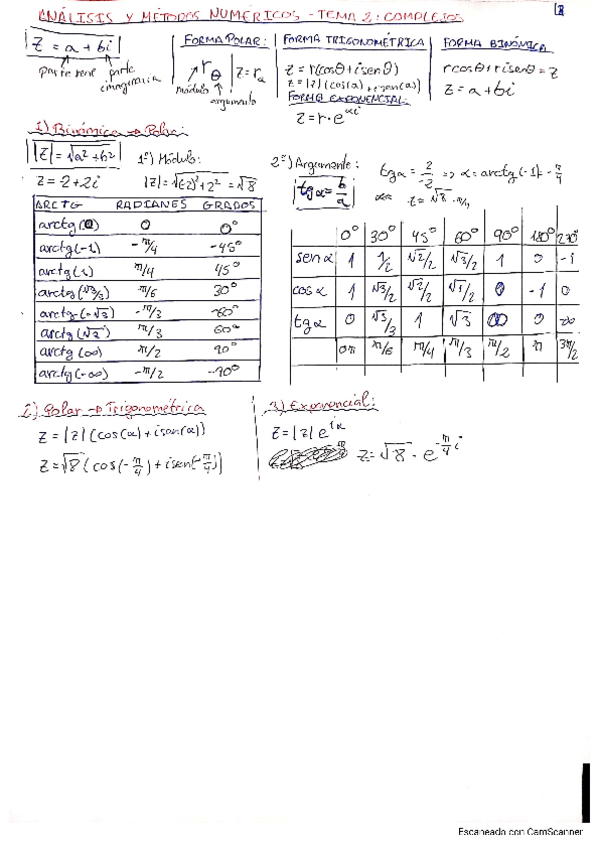 ANÁLISIS Y MÉTODOS NUMÉRICOS - TEMA 2: COMPLEJOS
|Z = a + bi|
parte real parte imaginaria
FORMA POLAR:
r θ
módulo
argumento
z = rα
FORMA TRIGONOMÉTRICA
z = r(cosθ + i senθ)
z = |z| (cos(α) + i sen(α))
FORMA EXPONENCIAL:
z = r · e^αi
FORMA BINÓMICA
r cosθ + r i senθ = z
z = a + bi
1) Binómica → Polar:
|z| = √a² + b²
1º) Módulo:
z = 2 + 2i
|z| = √(2)² + 2² = √8
2º) Argumento:
tgα = b/a
tgα = 2/-2 => α = arctg(-1) = -π/4
z = √8 -π/4
ARCTG RADIANES GRADOS
arctg(0) 0 0º
arctg(-1) -π/4 -45º
arctg(1) π/4 45º
arctg(√3/3) π/6 30º
arctg(-√3) -π/3 -60º
arctg(√3) π/3 60º
arctg(∞) π/2 90º
arctg(-∞) -π/2 -90º
0º 30º 45º 60º 90º 180º 270º
sen α 1 1/2 √2/2 √3/2 1 0 -1
cos α 1 √3/2 √2/2 √1/2 0 -1 0
tg α 0 √3/3 1 √3 ∞ 0 ∞
0π π/6 π/4 π/3 π/2 π 3π/2
2) Polar → Trigonométrica
z = |z| (cos(α) + i sen(α))
z = √8 (cos(-π/4) + i sen(-π/4))
3) Exponencial:
z = |z| e^iα
z = √8 · e^-π/4 i
Escaneado con CamScanner